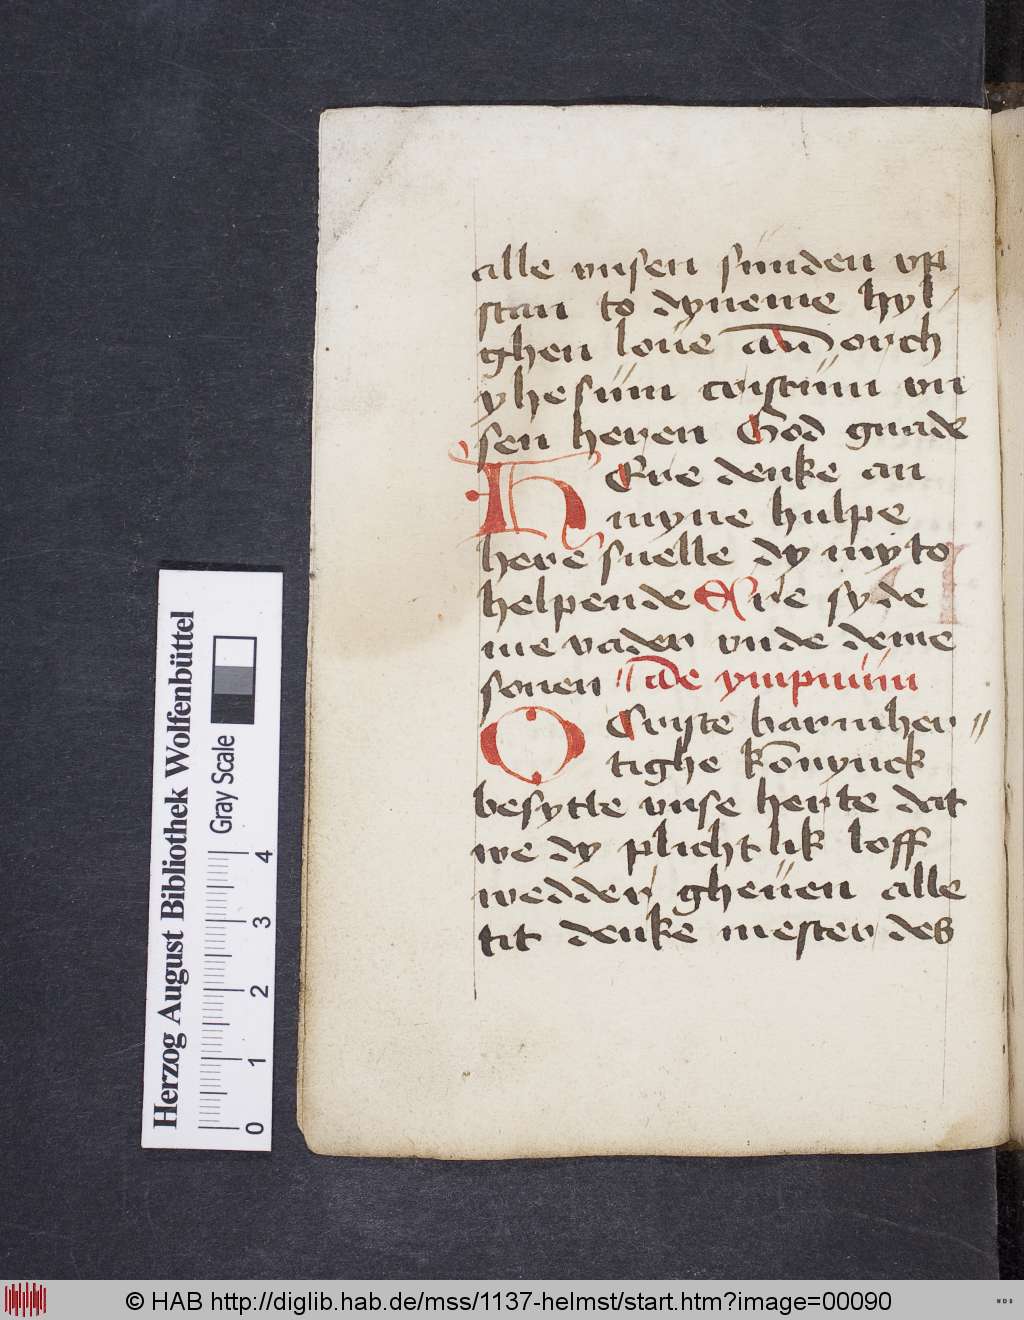 alle vnsen sunden vp
stan to dyneme hyl
ghen loue am̄ dorch
yhesum cristum vn
sen heren God gnade
HEre denke an
myne hulpe
here snelle dy my to
helpende Ere sy de
me vader vnde deme
sonen ade ympnum
O Criste barmher〃
tighe kōnynck
besytte vnse herte dat
we dy plichtlik loff
wedder gheuen alle
tit denke mester des
Herzog August Bibliothek Wolfenbüttel
Gray Scale
0 1 2 3 4
© HAB http://diglib.hab.de/mss/1137-helmst/start.htm?image=00090